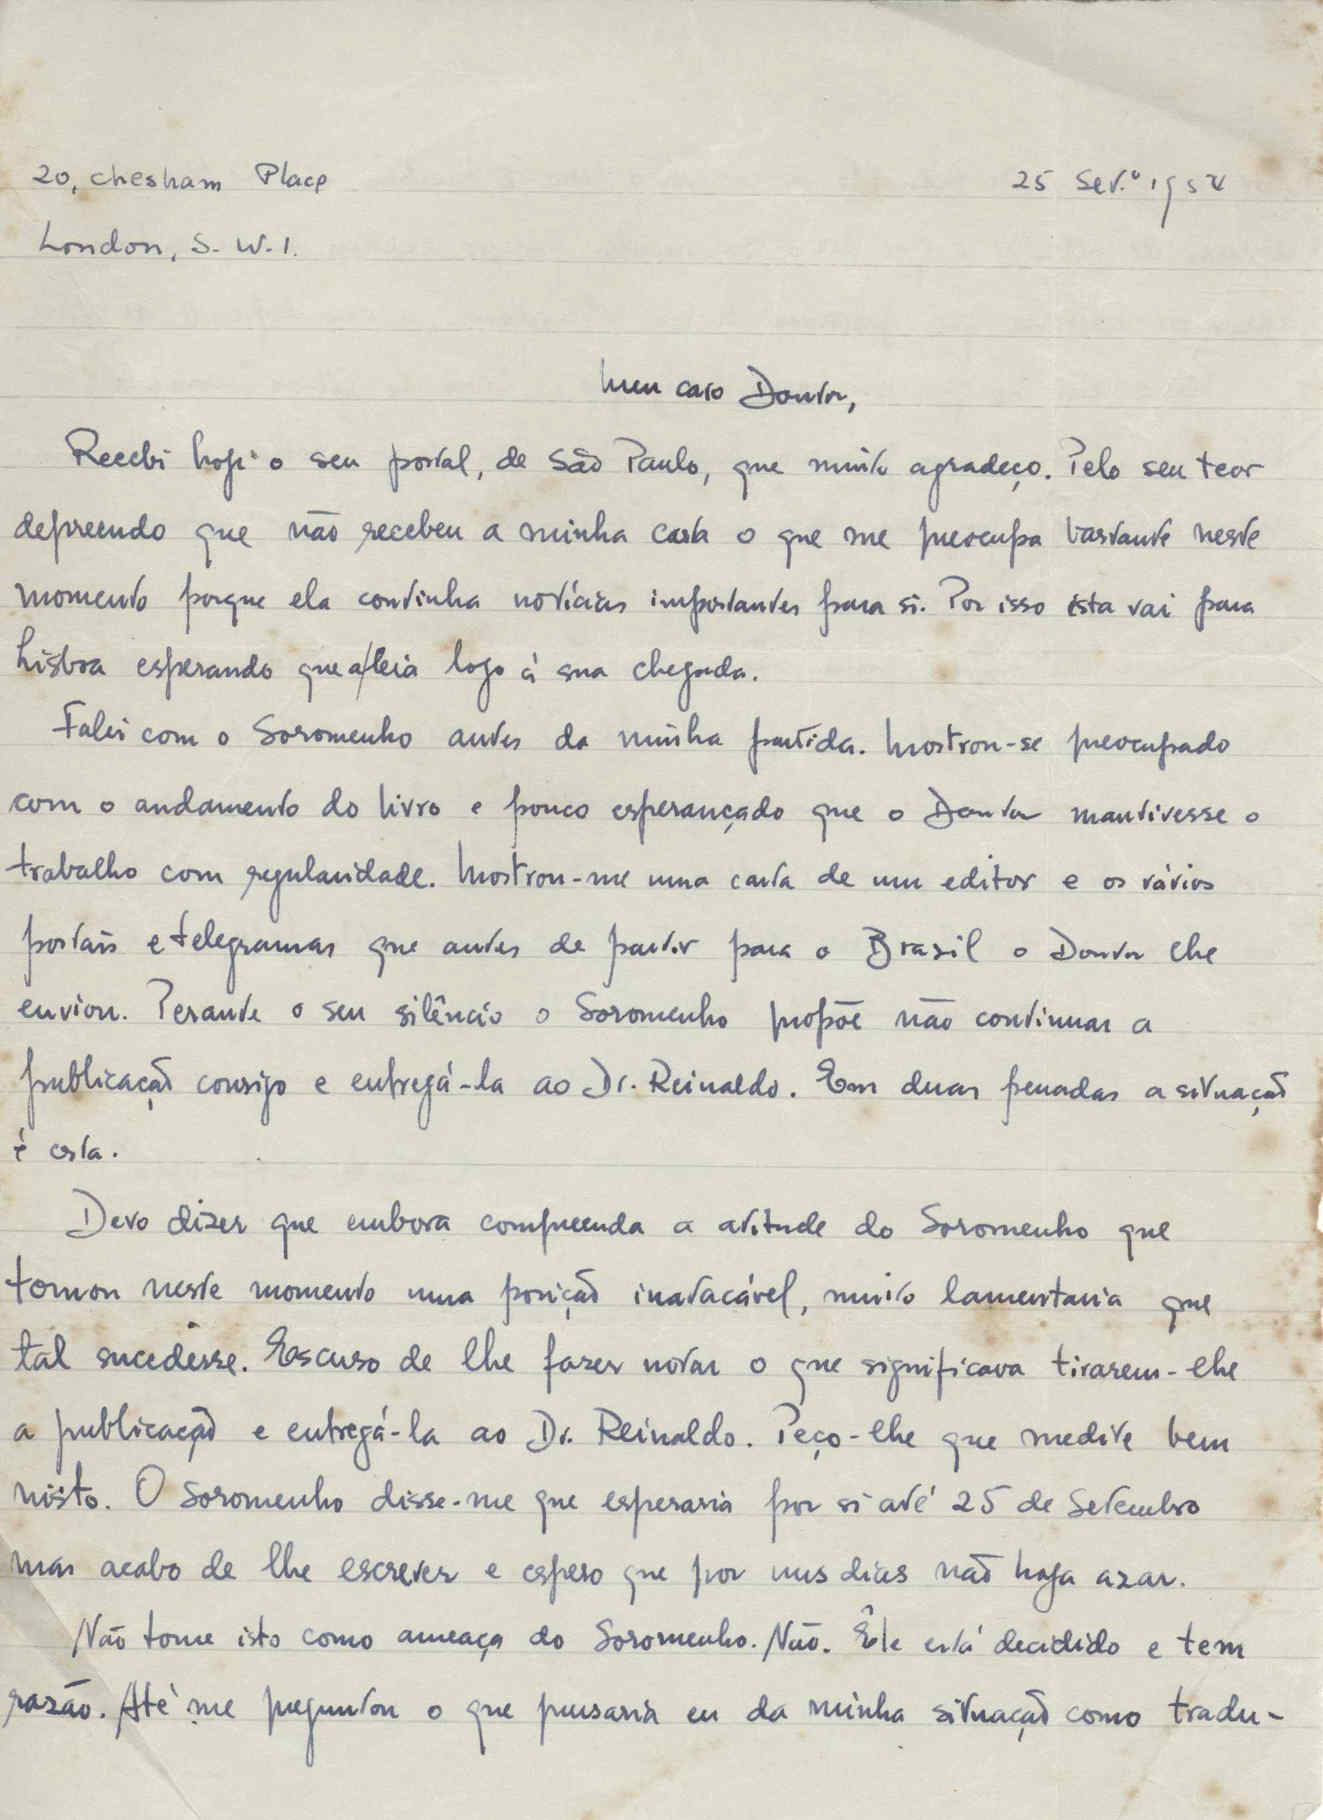 20, Chesham Place
25 Set.º 1954
London, S.W.1.
Meu caro Doutor,
Recebi hoje o seu postal, de São Paulo, que muito agradeço. Pelo seu teor
depreendo que não recebeu a minha carta o que me preocupa bastante neste
momento porque ela continha notícias importantes para si. Por isso esta vai para
Lisboa esperando que a leia logo à sua chegada.
Falei com o Soromenho antes da minha partida. Mostrou-se preocupado
com o andamento do livro e pouco esperançado que o Doutor mantivesse o
trabalho com regularidade. Mostrou-me uma carta de um editor e os vários
postais e telegramas que antes de partir para o Brazil o Doutor lhe
enviou. Perante o seu silêncio o Soromenho propõe não continuar a
publicação consigo e entregá-la ao Dr. Reinaldo. Em duas penadas a situação
é esta.
Devo dizer que embora compreenda a atitude do Soromenho que
tomou neste momento uma posição inatacável, muito lamentaria que
tal sucedesse. Escuso de lhe fazer notar o que significava tirarem-lhe
a publicação e entregá-la ao Dr. Reinaldo. Peço-lhe que medite bem
nisto. O Soromenho disse-me que esperaria por si até 25 de Setembro
mas acabo de lhe escrever e espero que por uns dias não haja azar.
Não tome isto como ameaça do Soromenho. Não. Êle está decidido e tem
razão. Até me preguntou o que pensaria eu da minha situação como tradu-